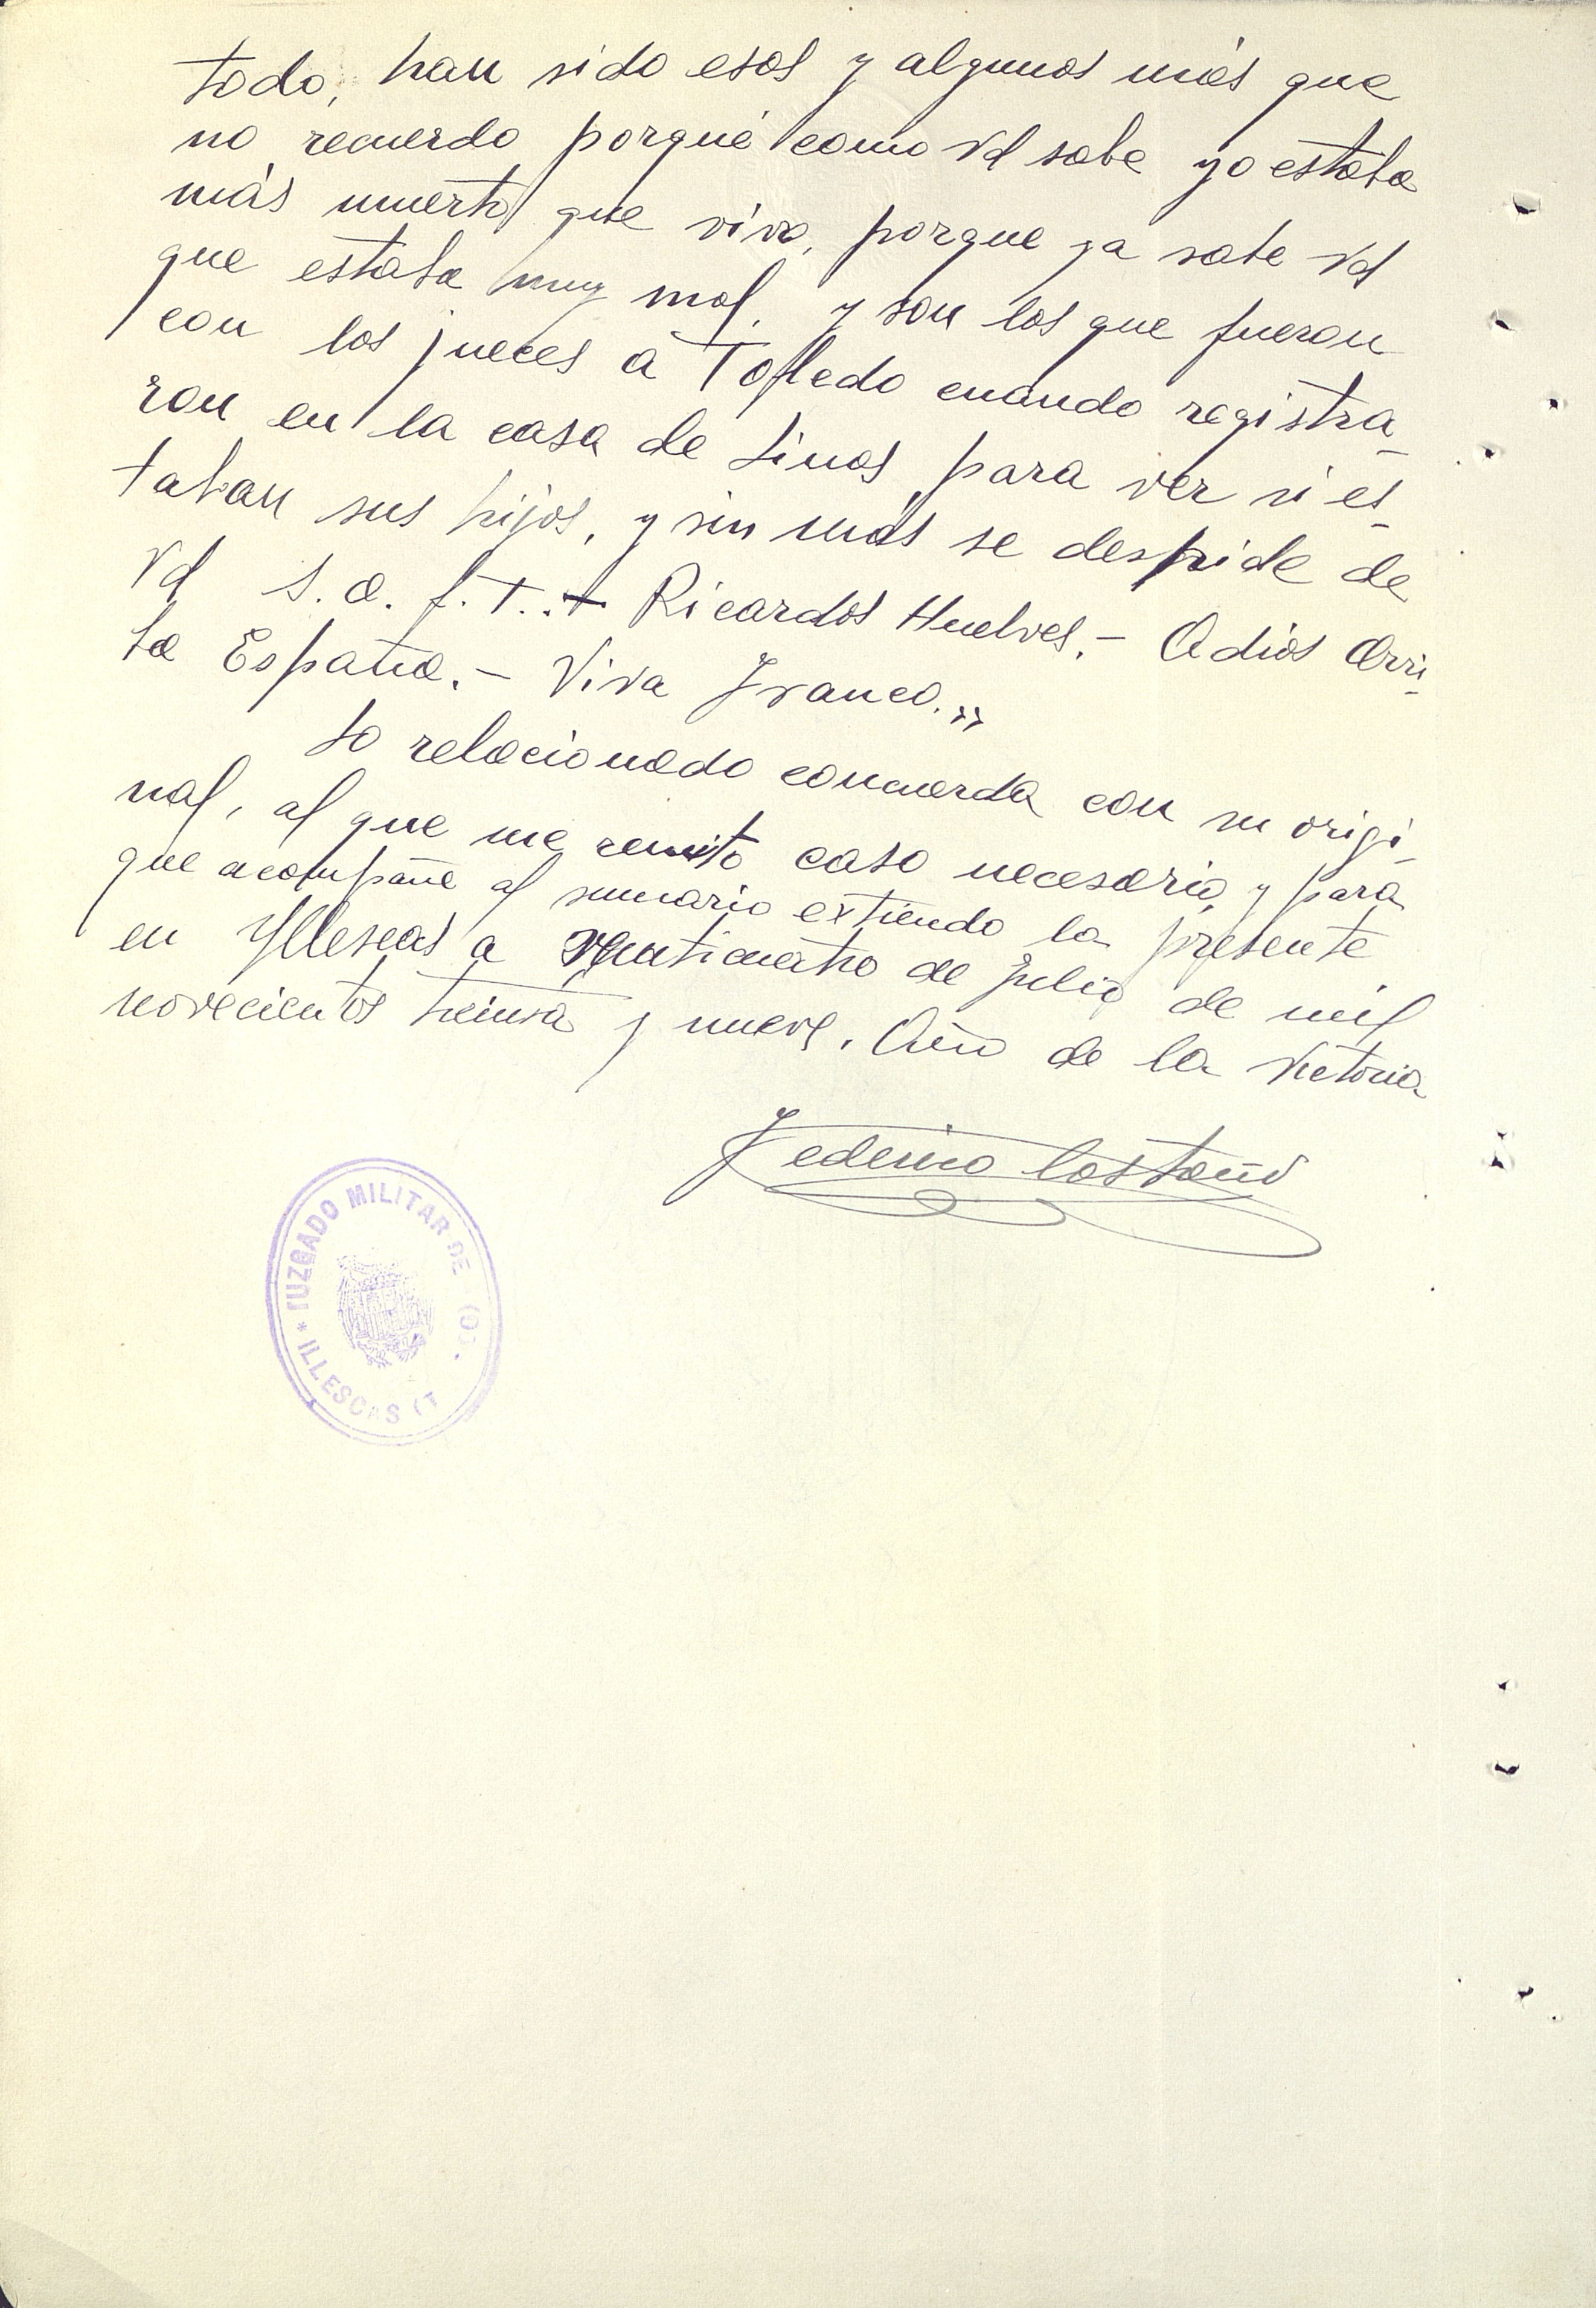 todo, han sido esos y algunos más que
no recuerdo porqué como Vd sabe yo estaba
más muerto que vivo, porque ya sabe Vd
que estaba muy mal, y son los que fueron
con los jueces a Toledo cuando registra-
ron en la casa de Linos para ver si es-
taban sus hijos, y sin más se despide de
Vd S. a. f. T. . Ricardos Huelves. - Adios Arri-
ba España. - Viva Franco.»
Lo relacionado concuerda con su origi-
nal, al que me remito caso necesario, y para
que acompañe al sumario extiendo la presente
en Yllescas a veinticuatro de Julio de mil
novecientos treinta y nueve. Año de la Victoria
Federico
JUZGADO MILITAR DE
ILLESCAS (T